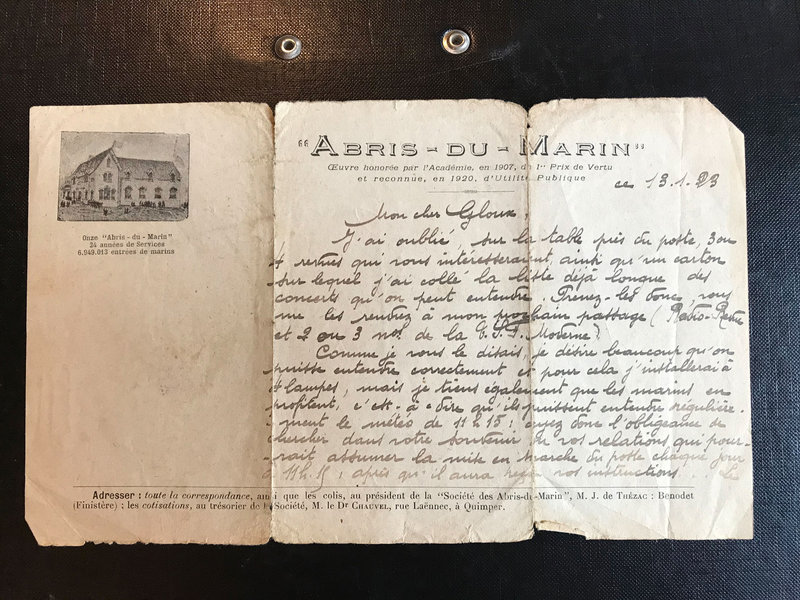 "ABRIS-DU-MARIN"
Œuvre honorée par l'Académie, en 1907, du 1er Prix de Vertu
et reconnue, en 1920, d'Utilité Publique
ce 13.1.23
Onze "Abris-du-Marin"
24 années de Services
6.949.013 entrées de marins
Mon cher Gloux,
J'ai oublié, sur la table près du poste, 3 ou
4 revues qui vous intéresseraient, ainsi qu'un carton
sur lequel j'ai collé la liste déjà longue des
concerts qu'on peut entendre. Prenez-les donc, vous
me les rendrez à mon prochain passage (Radio-Revue
et 2 ou 3 nos. de la T.S.F. Moderne).
Comme je vous le disais, je désire beaucoup qu'on
puisse entendre correctement et pour cela j'installerai à
4 lampes, mais je tiens également que les marins en
profitent, c'est-à-dire qu'ils puissent entendre régulière-
ment le météo de 11h15 ; ayez donc l'obligeance de
chercher dans votre souvenir ou vos relations qui pour-
rait assumer la mise en marche du poste chaque jour
à 11h.15 ; après qu'il aura reçu vos instructions... Le
Adresser : toute la correspondance, ainsi que les colis, au président de la "Société des Abris-du-Marin", M. J. de THÉZAC : Benodet
(Finistère) ; les cotisations, au trésorier de la Société, M. le Dr CHAUVEL, rue Laënnec, à Quimper.